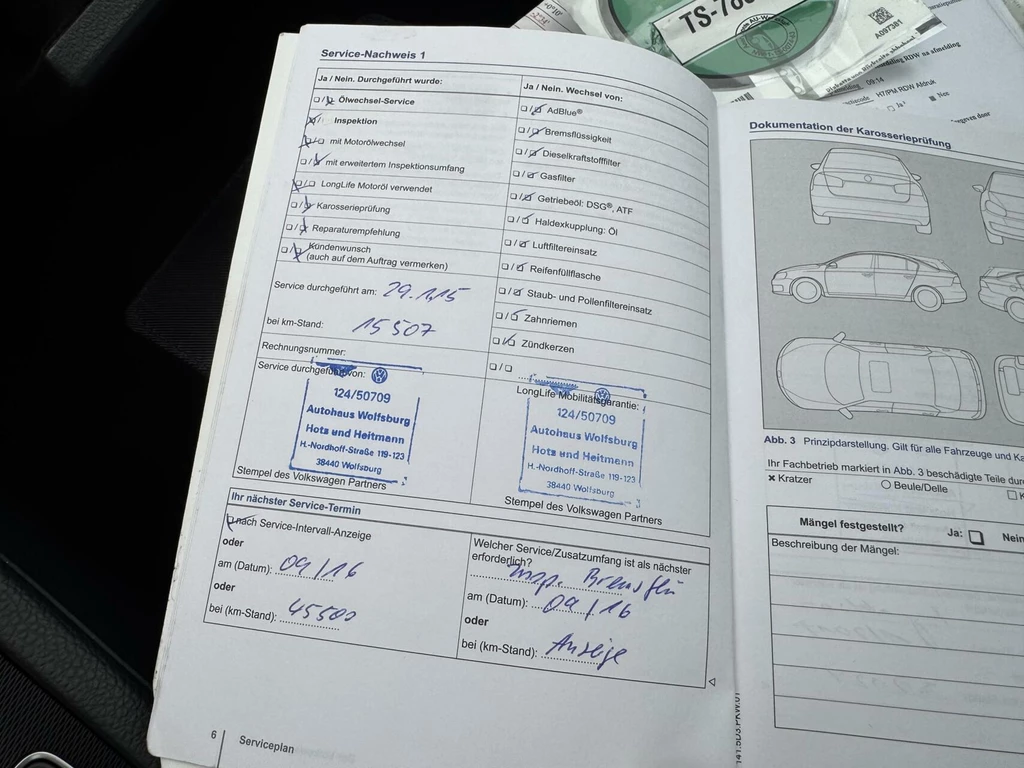 Service-Nachweis 1
Ja / Nein. Durchgeführt wurde:
Ölwechsel-Service
Inspektion
mit Motorölwechsel
mit erweitertem Inspektionsumfang
LongLife Motoröl verwendet
Karosserieprüfung
Reparaturempfehlung
Kundenwunsch
(auch auf dem Auftrag vermerken)
Service durchgeführt am: 29.1.15
bei km-Stand: 15 507
Rechnungsnummer:
Service durchgeführt von:
124/50709
Autohaus Wolfsburg
Hotz und Heitmann
H.-Nordhoff-Straße 119-123
38440 Wolfsburg
Stempel des Volkswagen Partners
Ja / Nein. Wechsel von:
AdBlue®
Bremsflüssigkeit
Dieselkraftstofffilter
Gasfilter
Getriebeöl: DSG®, ATF
Haldexkupplung: Öl
Luftfiltereinsatz
Reifenfüllflasche
Staub- und Pollenfiltereinsatz
Zahnriemen
Zündkerzen
LongLife Mobilitätsgarantie:
124/50709
Autohaus Wolfsburg
Hotz und Heitmann
H.-Nordhoff-Straße 119-123
38440 Wolfsburg
Stempel des Volkswagen Partners
Ihr nächster Service-Termin
nach Service-Intervall-Anzeige
oder
am (Datum): 09/16
oder
bei (km-Stand): 45500
Welcher Service/Zusatzumfang ist als nächster
erforderlich?
Insp. Bremsflü
am (Datum): 09/16
oder
bei (km-Stand): Anzeige
6
Serviceplan
TS-78
A097381
RDW na afmelding
09:14
H7/PM RDW Afdruk
Ja
Nee
Dokumentation der Karosserieprüfung
Abb. 3 Prinzipdarstellung. Gilt für alle Fahrzeuge und Ka
Ihr Fachbetrieb markiert in Abb. 3 beschädigte Teile dur
Kratzer
Beule/Delle
Mängel festgestellt?
Ja:
Nein
Beschreibung der Mängel: